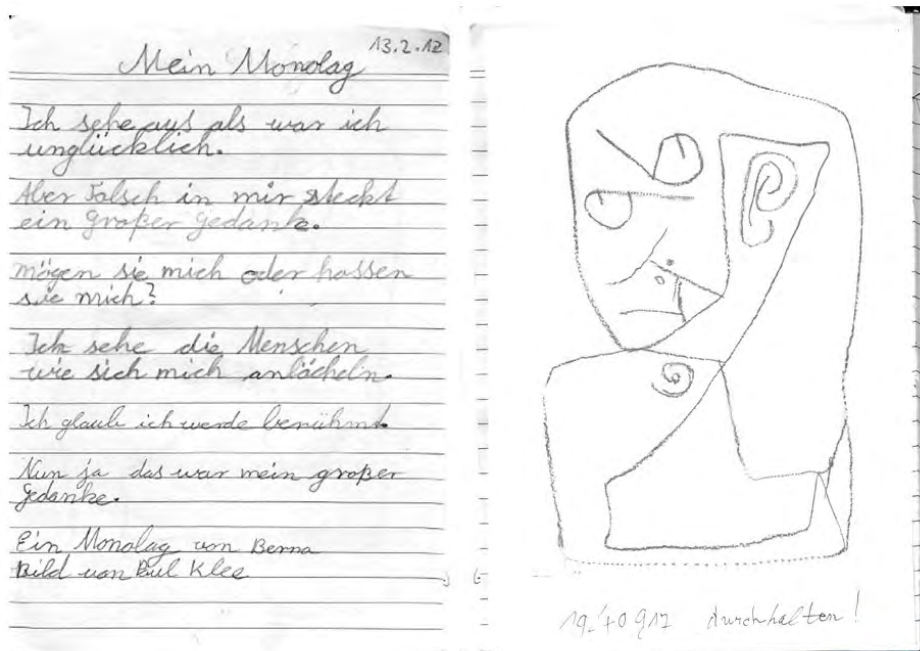 13.2.12
Mein Monolag
Ich sehe aus als war ich
unglücklich.
Aber Falsch in mir steckt
ein großer gedanke.
mögen sie mich oder hassen
sie mich?
Ich sehe die Menschen
wie sich mich anlächeln.
Ich glaube ich werde berühmt.
Nun ja das war mein großer
gedanke.
Ein Monolag von Berna
Bild von Klee
durchhalten!